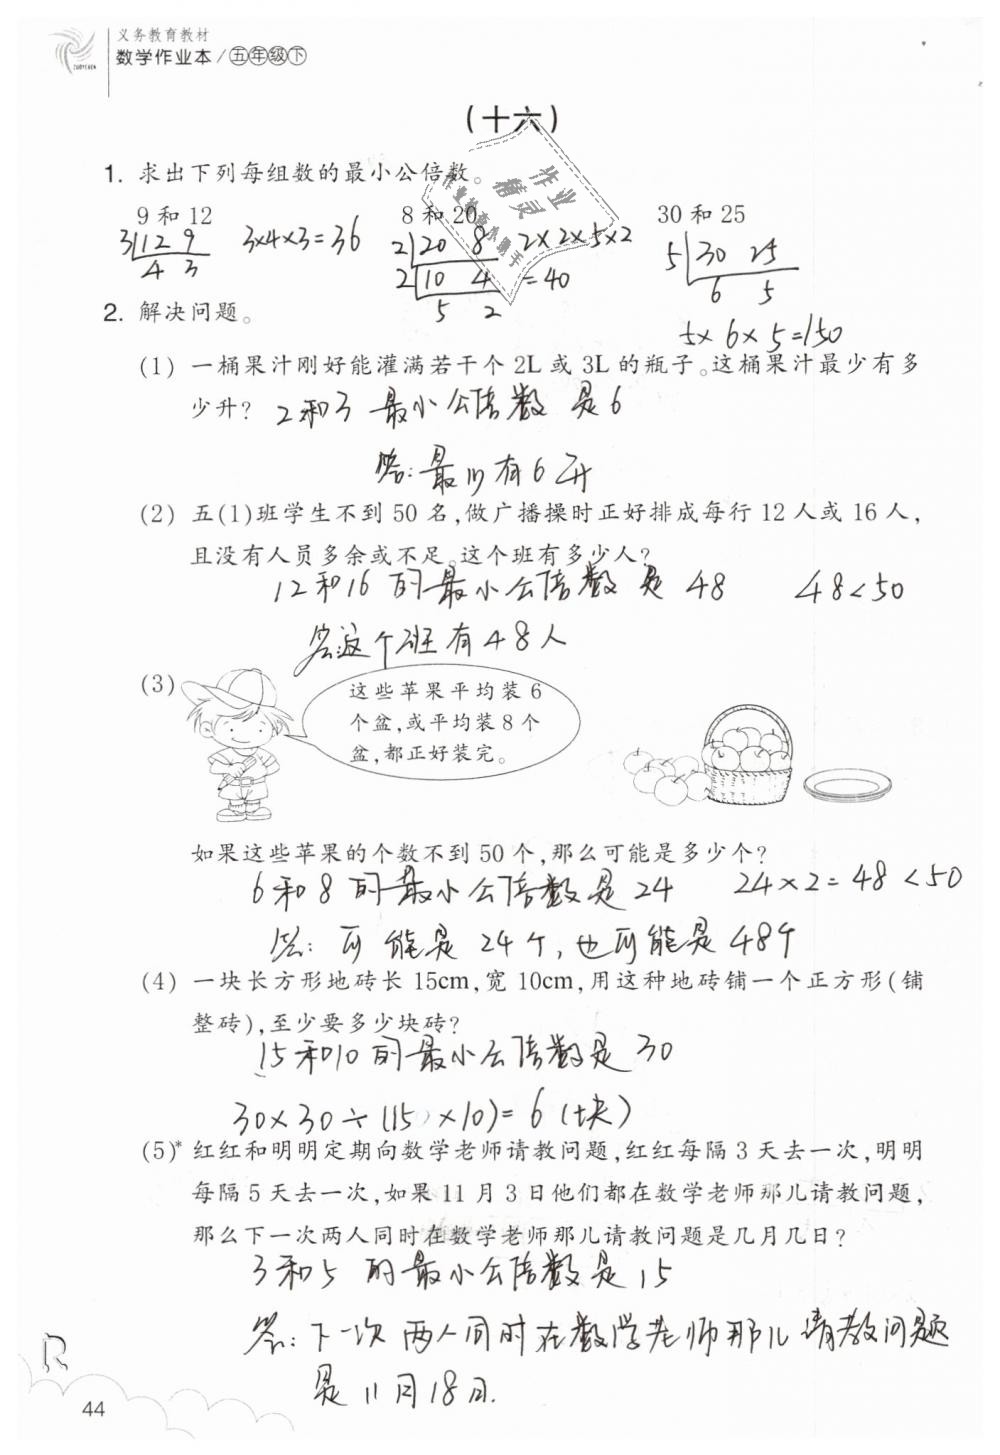 义务教育教材
数学作业本/五年级下
ZUOYEBEN
(十六)
1. 求出下列每组数的最小公倍数。
9和12 8和20 30和25
3 12 9 3×4×3=36 2 20 8 2×2×5×2 5 30 25
4 3 2 10 4 =40 6 5
5 2
5×6×5=150
作业
精灵
2. 解决问题。
(1) 一桶果汁刚好能灌满若干个2L或3L的瓶子。这桶果汁最少有多
少升? 2和3 最小公倍数是6
答:最少有6升
(2) 五(1)班学生不到50名,做广播操时正好排成每行12人或16人,
且没有人员多余或不足。这个班有多少人?
12和16的最小公倍数是48 48<50
答这个班有48人
(3)
这些苹果平均装6
个盆,或平均装8个
盆,都正好装完。
如果这些苹果的个数不到50个,那么可能是多少个?
6和8的最小公倍数是24 24×2=48<50
答:可能是24个,也可能是48个
(4) 一块长方形地砖长15cm,宽10cm,用这种地砖铺一个正方形(铺
整砖),至少要多少块砖?
15和10的最小公倍数是30
30×30÷(15×10)=6(块)
(5)* 红红和明明定期向数学老师请教问题,红红每隔3天去一次,明明
每隔5天去一次,如果11月3日他们都在数学老师那儿请教问题,
那么下一次两人同时在数学老师那儿请教问题是几月几日?
3和5的最小公倍数是15
答:下一次两人同时在数学老师那儿请教问题
是11月18日.
R
44